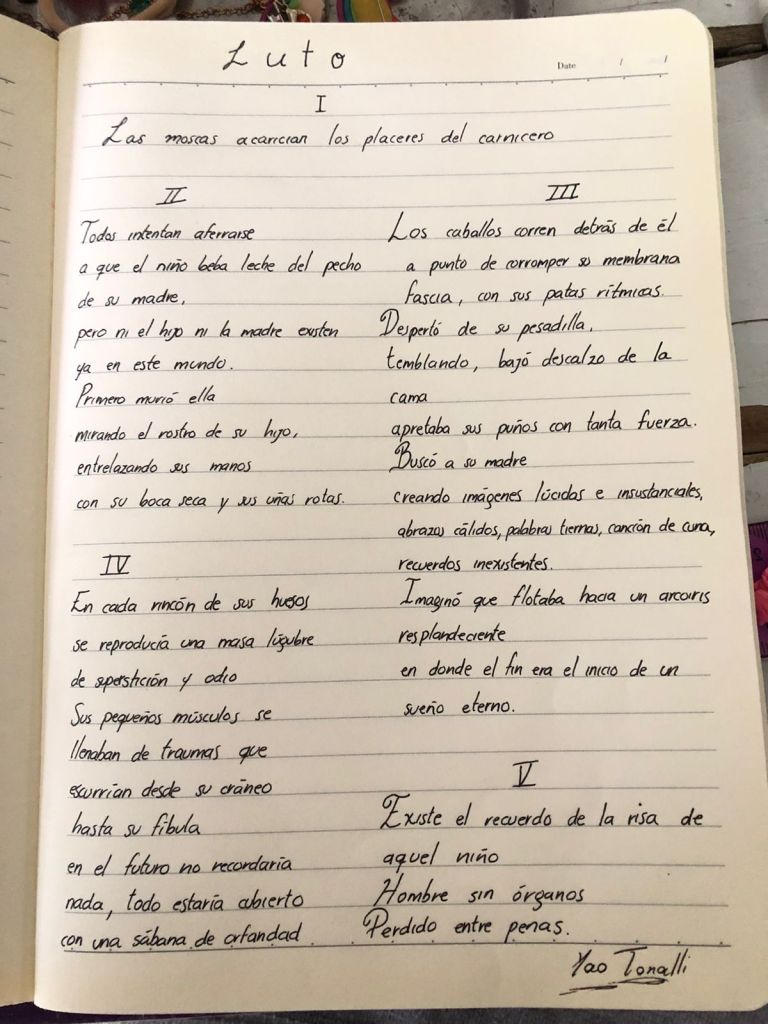 Luto
Date / /
I
Las moscas acarician los placeres del carnicero
II
Todos intentan aferrarse
a que el niño beba leche del pecho
de su madre,
pero ni el hijo ni la madre existen
ya en este mundo.
Primero murió ella
mirando el rostro de su hijo,
entrelazando sus manos
con su boca seca y sus uñas rotas.
III
Los caballos corren detrás de él
a punto de corromper su membrana
fascia, con sus patas rítmicas.
Despertó de su pesadilla,
temblando, bajó descalzo de la
cama
apretaba sus puños con tanta fuerza.
Buscó a su madre
creando imágenes lúcidas e insustanciales,
abrazos cálidos, palabras tiernas, canción de cuna,
recuerdos inexistentes.
Imaginó que flotaba hacia un arcoiris
resplandeciente
en donde el fin era el inicio de un
sueño eterno.
IV
En cada rincón de sus huesos
se reproducía una masa lúgubre
de superstición y odio
Sus pequeños músculos se
llenaban de traumas que
escurrían desde su cráneo
hasta su fíbula
en el futuro no recordaría
nada, todo estaría cubierto
con una sábana de orfandad
V
Existe el recuerdo de la risa de
aquel niño
Hombre sin órganos
Perdido entre penas.
Yao Tonalli